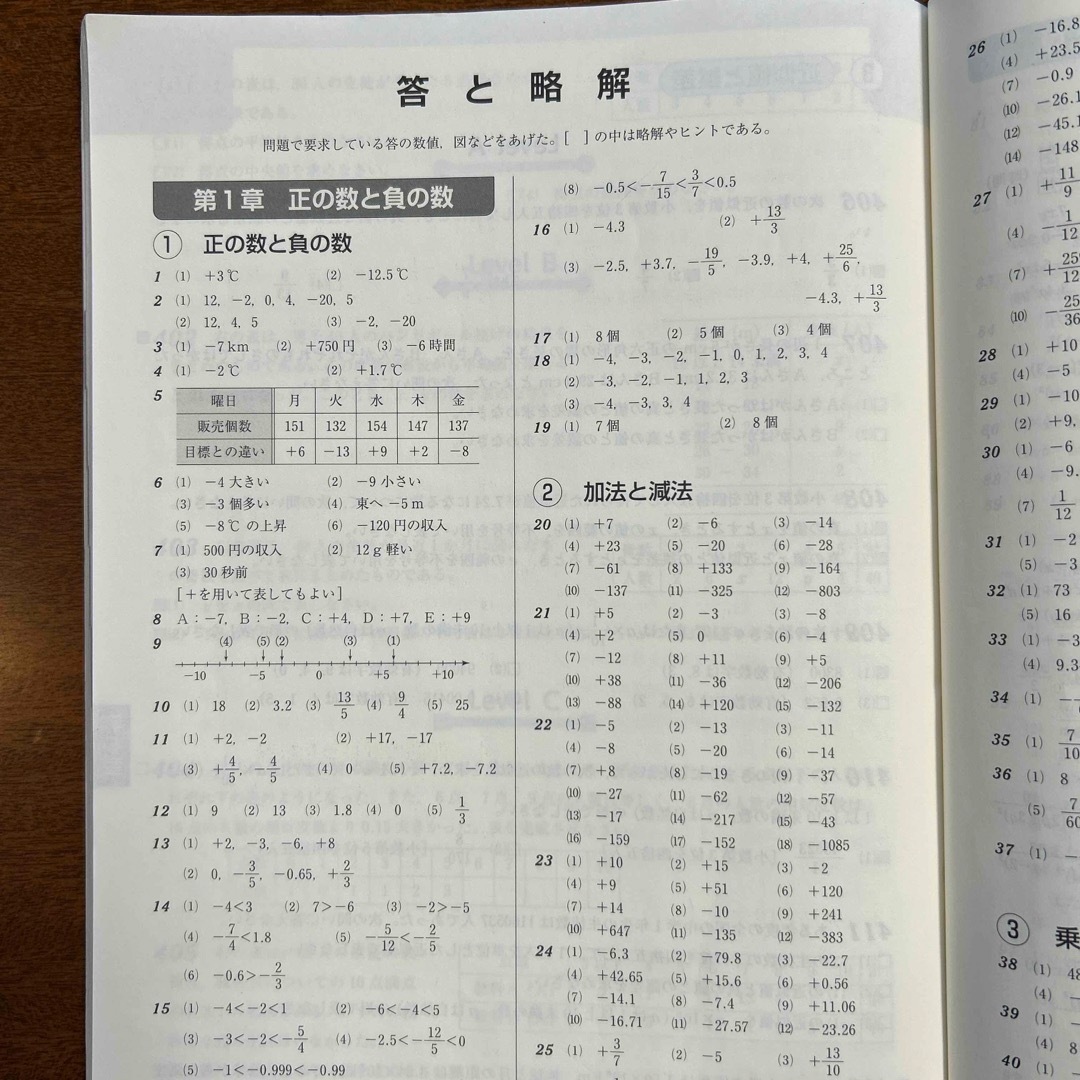 答と略解
問題で要求している答の数値，図などをあげた。[ ]の中は略解やヒントである。
第1章 正の数と負の数
① 正の数と負の数
1 (1) +3℃ (2) −12.5℃
2 (1) 12, −2, 0, 4, −20, 5
(2) 12, 4, 5 (3) −2, −20
3 (1) −7km (2) +750円 (3) −6時間
4 (1) −2℃ (2) +1.7℃
5
曜日 月 火 水 木 金
販売個数 151 132 154 147 137
目標との違い +6 −13 +9 +2 −8
6 (1) −4大きい (2) −9小さい
(3) −3個多い (4) 東へ−5m
(5) −8℃の上昇 (6) −120円の収入
7 (1) 500円の収入 (2) 12g軽い
(3) 30秒前
[+を用いて表してもよい]
8 A：−7, B：−2, C：+4, D：+7, E：+9
9 (4) (5) (2) (3) (1)
−10 −5 0 +5 +10
10 (1) 18 (2) 3.2 (3) 13/5 (4) 9/4 (5) 25
11 (1) +2, −2 (2) +17, −17
(3) +4/5, −4/5 (4) 0 (5) +7.2, −7.2
12 (1) 9 (2) 13 (3) 1.8 (4) 0 (5) 1/3
13 (1) +2, −3, −6, +8
(2) 0, −3/5, −0.65, +2/3
14 (1) −4<3 (2) 7>−6 (3) −2>−5
(4) −7/4<1.8 (5) −5/12<−2/5
(6) −0.6>−2/3
15 (1) −4<−2<1 (2) −6<−4<5
(3) −3<−2<−5/4 (4) −2.5<−12/5<0
(5) −1<−0.999<−0.99
(8) −0.5<−7/15<3/7<0.5
16 (1) −4.3 (2) +13/3
(3) −2.5, +3.7, −19/5, −3.9, +4, +25/6,
−4.3, +13/3
17 (1) 8個 (2) 5個 (3) 4個
18 (1) −4, −3, −2, −1, 0, 1, 2, 3, 4
(2) −3, −2, −1, 1, 2, 3
(3) −4, −3, 3, 4
19 (1) 7個 (2) 8個
② 加法と減法
20 (1) +7 (2) −6 (3) −14
(4) +23 (5) −20 (6) −28
(7) −61 (8) +133 (9) −164
(10) −137 (11) −325 (12) −803
21 (1) +5 (2) −3 (3) −8
(4) +2 (5) −6 (6) −4
(7) −12 (8) +11 (9) +5
(10) +38 (11) −36 (12) −206
(13) −88 (14) +120 (15) −132
22 (1) −5 (2) −13 (3) −11
(4) −8 (5) −20 (6) −14
(7) +8 (8) −19 (9) −37
(10) −27 (11) −62 (12) −57
(13) −17 (14) −217 (15) −43
(16) −159 (17) −152 (18) −1085
23 (1) +10 (2) +15 (3) −2
(4) +9 (5) +51 (6) +120
(7) +14 (8) −10 (9) +241
(10) +647 (11) −135 (12) −383
24 (1) −6.3 (2) −79.8 (3) −22.7
(4) +42.65 (5) +15.6 (6) +0.56
(7) −14.1 (8) −7.4 (9) +11.06
(10) −16.71 (11) −27.57 (12) −23.26
25 (1) +3/7 (2) −5 (3) +13/10
26 (1) −16.8
(4) +23.5
(7) −0.9
(10) −26.1
(12) −45.1
(14) −148
27 (1) +11/9
(4) −1/12
(7) +259/12
(10) −25/36
28 (1) +10
(4) −5
29 (1) −10
(2) +9,
30 (1) −6
(4) −9.
(7) 1/12
31 (1) −2
(5) −3
32 (1) 73
(5) 16
33 (1) −3
(4) 9.3
34 (1) −
35 (1) 7/10
36 (1) 8
(5) 7/60
37 (1) −
③ 乗
38 (1) 48
(4) −
39 (1) −
(4) 8
40 (1) −